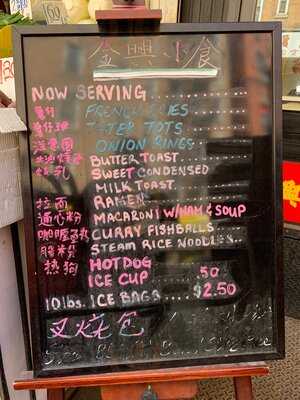 金興小食
NOW SERVING
薯仔 FRENCH FRIES
薯仔球 TATER TOTS
洋葱圈 ONION RINGS
牛油燒 BUTTER TOAST
SWEET CONDENSED
MILK TOAST
拉面 RAMEN
通心粉 MACARONI W/HAM & SOUP
咖喱魚丸 CURRY FISHBALLS
腸粉 STEAM RICE NOODLES
熱狗 HOTDOG
ICE CUP .50
10 lbs. ICE BAGS $2.50
叉烧包